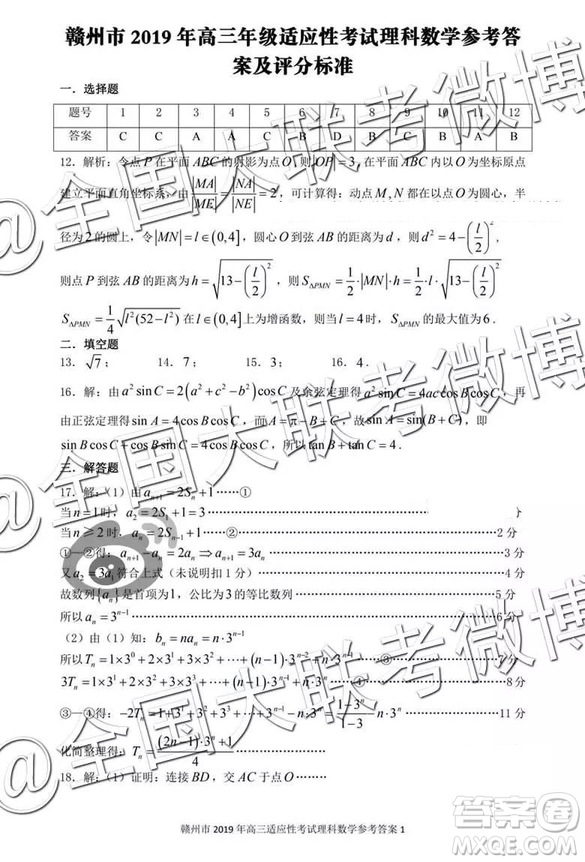 赣州市 2019 年高三年级适应性考试理科数学参考答
案及评分标准
一．选择题
题号 1 2 3 4 5 6 7 8 9 10 11 12
答案 C C A A C B D B C A A B
12. 解析：令点 P 在平面 ABC 的射影为点 O，则 OP = 3，在平面 ABC 内以 O 为坐标原点
建立平面直角坐标系，由 |MA|/|ME| = |NA|/|NE| = 2，可计算得：动点 M、N 都在以点 O 为圆心，半
径为 2 的圆上，令 |MN| = l ∈ (0,4]，圆心 O 到弦 AB 的距离为 d，则 d² = 4 − (l/2)²，
则点 P 到弦 AB 的距离为 h = √(13 − (l/2)²)，则 S△PMN = 1/2·|MN|·h = 1/2·l·√(13 − (l/2)²)
S△PMN = 1/4 √(l²(52 − l²)) 在 l ∈ (0,4] 上为增函数，则当 l = 4 时，S△PMN 的最大值为 6．
二．填空题
13. √7； 14. 7； 15. 3； 16. 4．
16. 解：由 a² sin C = 2(a² + c² − b²) cos C 及余弦定理得 a² sin C = 4ac cos B cos C，再
由正弦定理得 sin A = 4cos B cos C，而 A = π − B − C，故 sin A = sin(B + C)，即
sin B cos C + cos B sin C = 4cos B cos C，所以 tan B + tan C = 4．
三．解答题
17. 解：（1）由 aₙ₊₁ = 2Sₙ + 1 ……①
当 n = 1 时，a₂ = 2S₁ + 1 = 3
当 n ≥ 2 时，aₙ = 2Sₙ₋₁ + 1 ……② 2 分
①—②得：aₙ₊₁ − aₙ = 2aₙ ⇒ aₙ₊₁ = 3aₙ 3 分
又 a₂ = 3a₁ 符合上式（未说明扣 1 分） 4 分
故数列 {aₙ} 是首项为 1，公比为 3 的等比数列 5 分
所以 aₙ = 3ⁿ⁻¹ 6 分
（2）由（1）知：bₙ = naₙ = n·3ⁿ⁻¹
所以 Tₙ = 1×3⁰ + 2×3¹ + 3×3² + ⋯ + (n−1)·3ⁿ⁻² + n·3ⁿ⁻¹
3Tₙ = 1×3¹ + 2×3² + 3×3³ + ⋯ + (n−1)·3ⁿ⁻¹ + n·3ⁿ
③—④得：−2Tₙ = 1 + 3¹ + 3² + 3³ + ⋯ + 3ⁿ⁻¹ − n·3ⁿ = (1−3ⁿ)/(1−3) − n·3ⁿ 11 分
化简整理得：Tₙ = ((2n−1)·3ⁿ + 1)/4
18. 解：（1）证明：连接 BD，交 AC 于点 O……
赣州市 2019 年高三适应性考试理科数学参考答案 1
@全国大联考微博
@全国大联考微博
答案圈
MXQE.COM